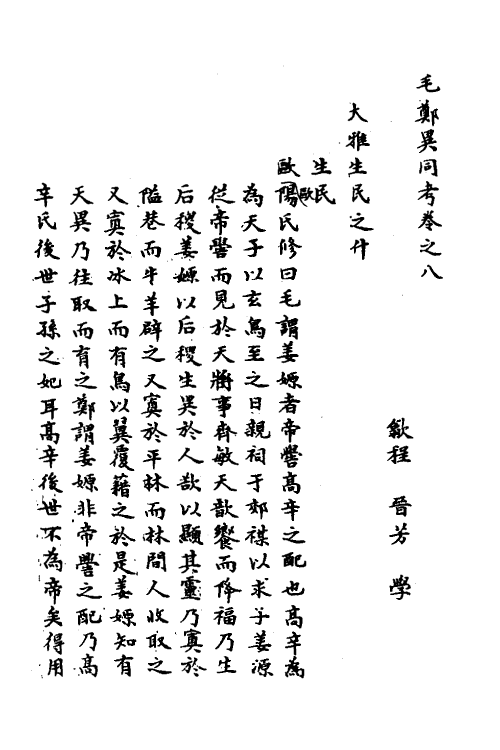 毛鄭異同考卷之八
歙程 晉芳 學
大雅生民之什
生民
歐陽氏修曰毛謂姜嫄者帝嚳高辛之配也高辛為
為天子以玄鳥至之日親祠于郊禖以求子姜源
從帝嚳而見於天將事齊敏天歆饗而降福乃生
后稷姜嫄以后稷生異於人欲以顯其靈乃寘於
隘巷而牛羊辟之又寘於平林而林間人收取之
又寘於冰上而有鳥以翼覆藉之於是姜嫄知有
天異乃往取而育之鄭謂姜嫄非帝嚳之配乃高
辛氏後世子孫之妃耳高辛後世不為帝矣得用